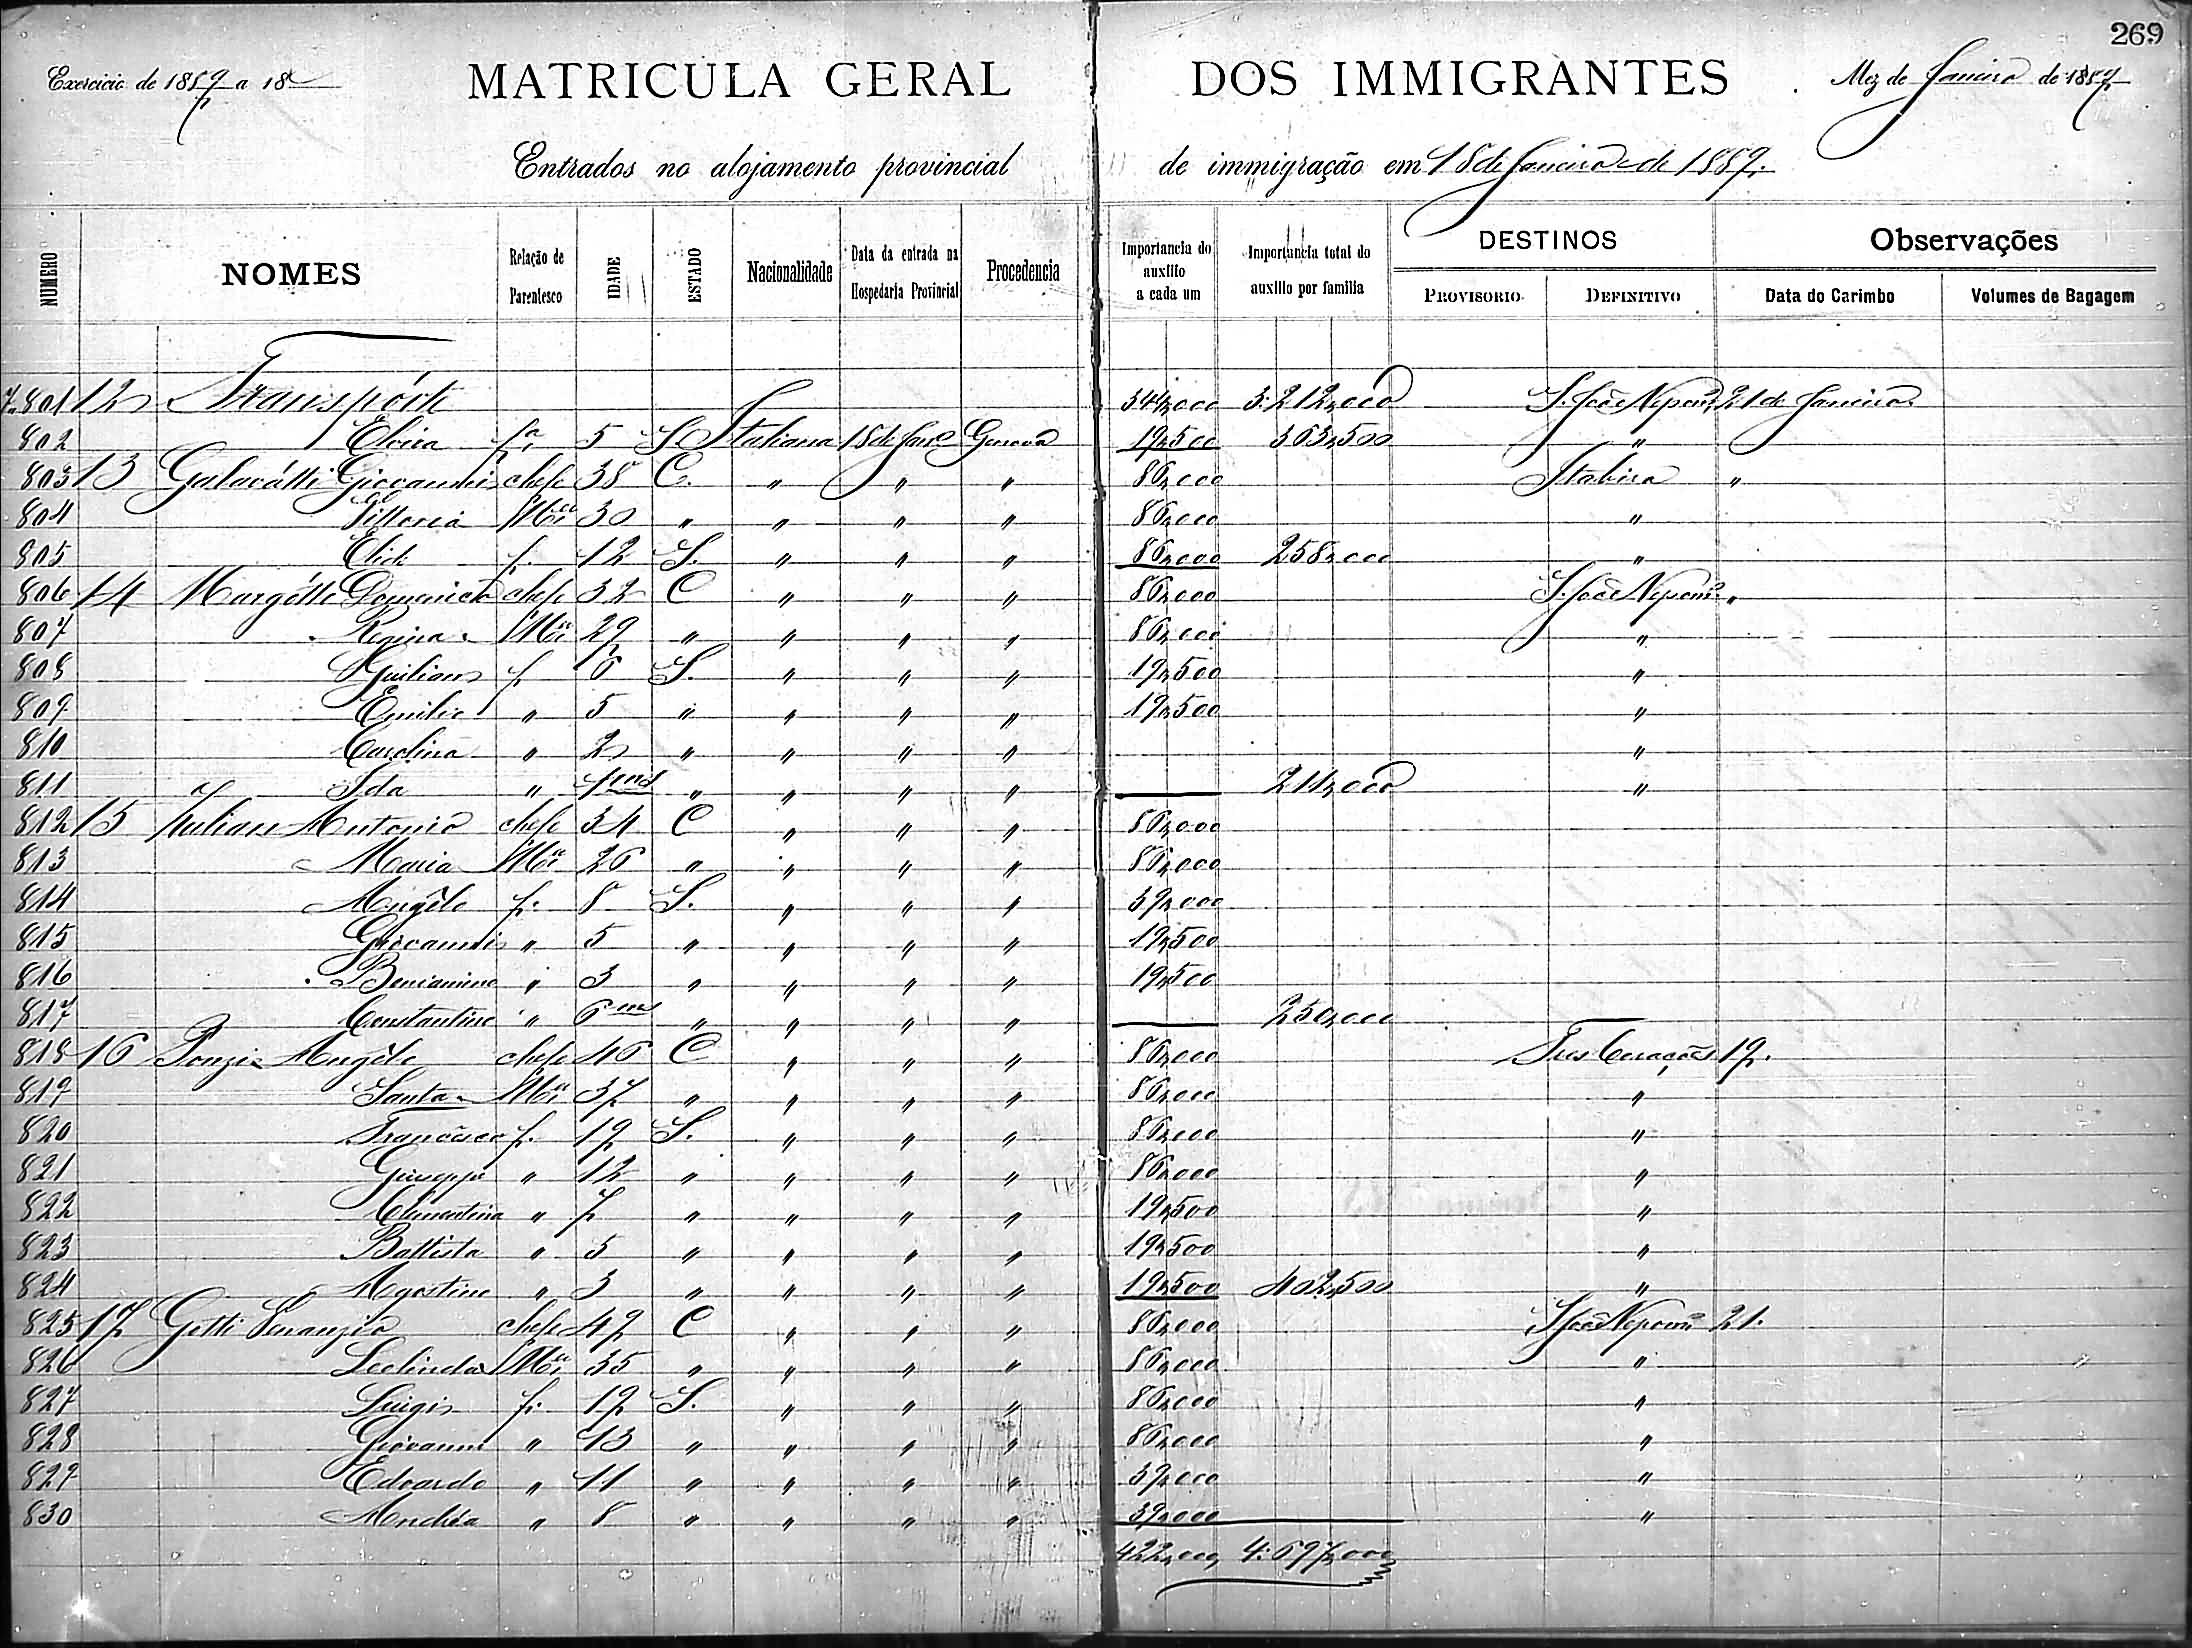 269
Exercicio de 1889 a 18
MATRICULA GERAL DOS IMMIGRANTES
Mez de Janeiro de 1889
Entrados no alojamento provincial de immigração em 18 de Janeiro de 1889.
NUMERO NOMES Relação de Parentesco IDADE ESTADO Nacionalidade Data da entrada na Hospedaria Provincial Procedencia Importancia do auxilio a cada um Importancia total do auxilio por familia DESTINOS PROVISORIO DEFINITIVO Observações Data do Carimbo Volumes de Bagagem
801 12 Transpórte 344,000 3:212,000 S. João Nepom. 21 de Janeiro
802 Elvira fa 5 S. Italiana 18 de Janro Genova 19,500 363,500 "
803 13 Galavátti Giovanni chefe 38 C. " " " 86,000 Itabira "
804 Vittoria Mer 30 " " " " 86,000 "
805 f. 12 S. " " " 86,000 258,000 "
806 14 Margótti Domenico chefe 32 C " " " 86,000 S. João Nepom. "
807 Regina Mer 29 " " " " 86,000 "
808 Guiliano f 6 S. " " " 19,500 "
809 Emilio " 5 " " " " 19,500 "
810 Carolina " 2 " " " " "
811 Ida " 1 ms " " " " 211,000 "
812 15 Antonio chefe 34 C " " " 86,000
813 Maria Mer 26 " " " " 86,000
814 Angelo f. 8 S. " " " 39,000
815 Giovanni " 5 " " " " 19,500
816 Beniamino " 3 " " " " 19,500
817 Constantino " 6 ms " " " " 250,000
818 16 Ponzi Angelo chefe 46 C " " " 86,000 Tres Corações 19.
819 Santa Mer 37 " " " " 86,000 "
820 Francisco f. 19 S. " " " 86,000 "
821 Giuseppe " 12 " " " " 86,000 "
822 Clementina " 7 " " " " 19,500 "
823 Battista " 5 " " " " 19,500 "
824 Agostino " 3 " " " " 19,500 402,500 "
825 17 Gotti Venanzio chefe 49 C " " " 86,000 S. João Nepom. 21.
826 Mer 35 " " " " 86,000 "
827 Luigi f. 19 S. " " " 86,000 "
828 Giovanni " 13 " " " " 86,000 "
829 Edoardo " 11 " " " " 39,000 "
830 " 8 " " " " 39,000 "
422,000 4:697,000